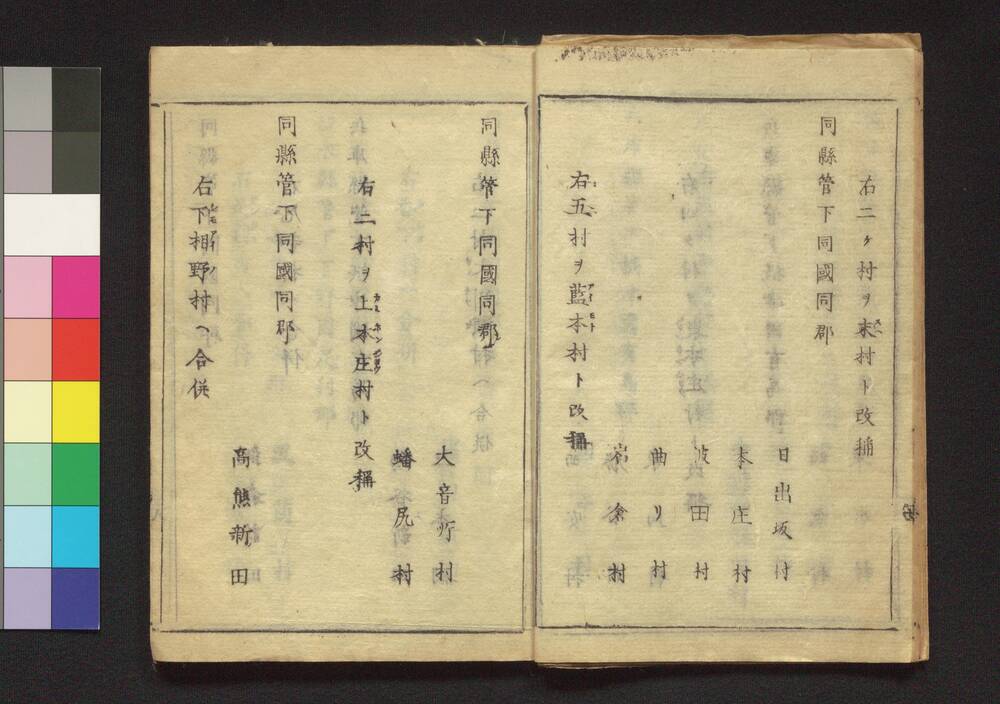 右二ヶ村ヲ末村ト改稱
同縣管下同國同郡
日出坂村
本庄村
波田村
曲リ村
岩倉村
右五村ヲ藍本村ト改稱
同縣管下同國同郡
大音所村
蟠尻村
右二村ヲ上本庄村ト改稱
同縣管下同國同郡
高熊新田
右下相野村ヘ合併